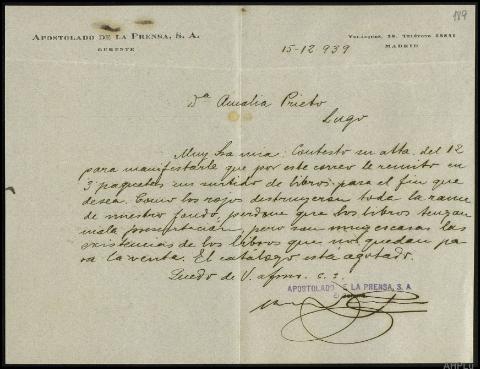 189
APOSTOLADO DE LA PRENSA, S. A.
GERENTE
MADRID
15-12 939
Dª Amalia Prieto
Lugo
Muy Sra mia: Contesto su atta. del 12
para manifestarle que por este correo le remito en
3 paquetes un surtido de libros para el fin que
desea. Como los rojos destruyeron toda la rama
de nuestro fondo, perdone que los libros tengan
mala presentación, pero son muy escasas las
existencias de los libros que nos quedan pa
ra la venta. El catálogo está agotado.
Quedo de V. afmo. s. s.
APOSTOLADO DE LA PRENSA, S. A.
AHPLU